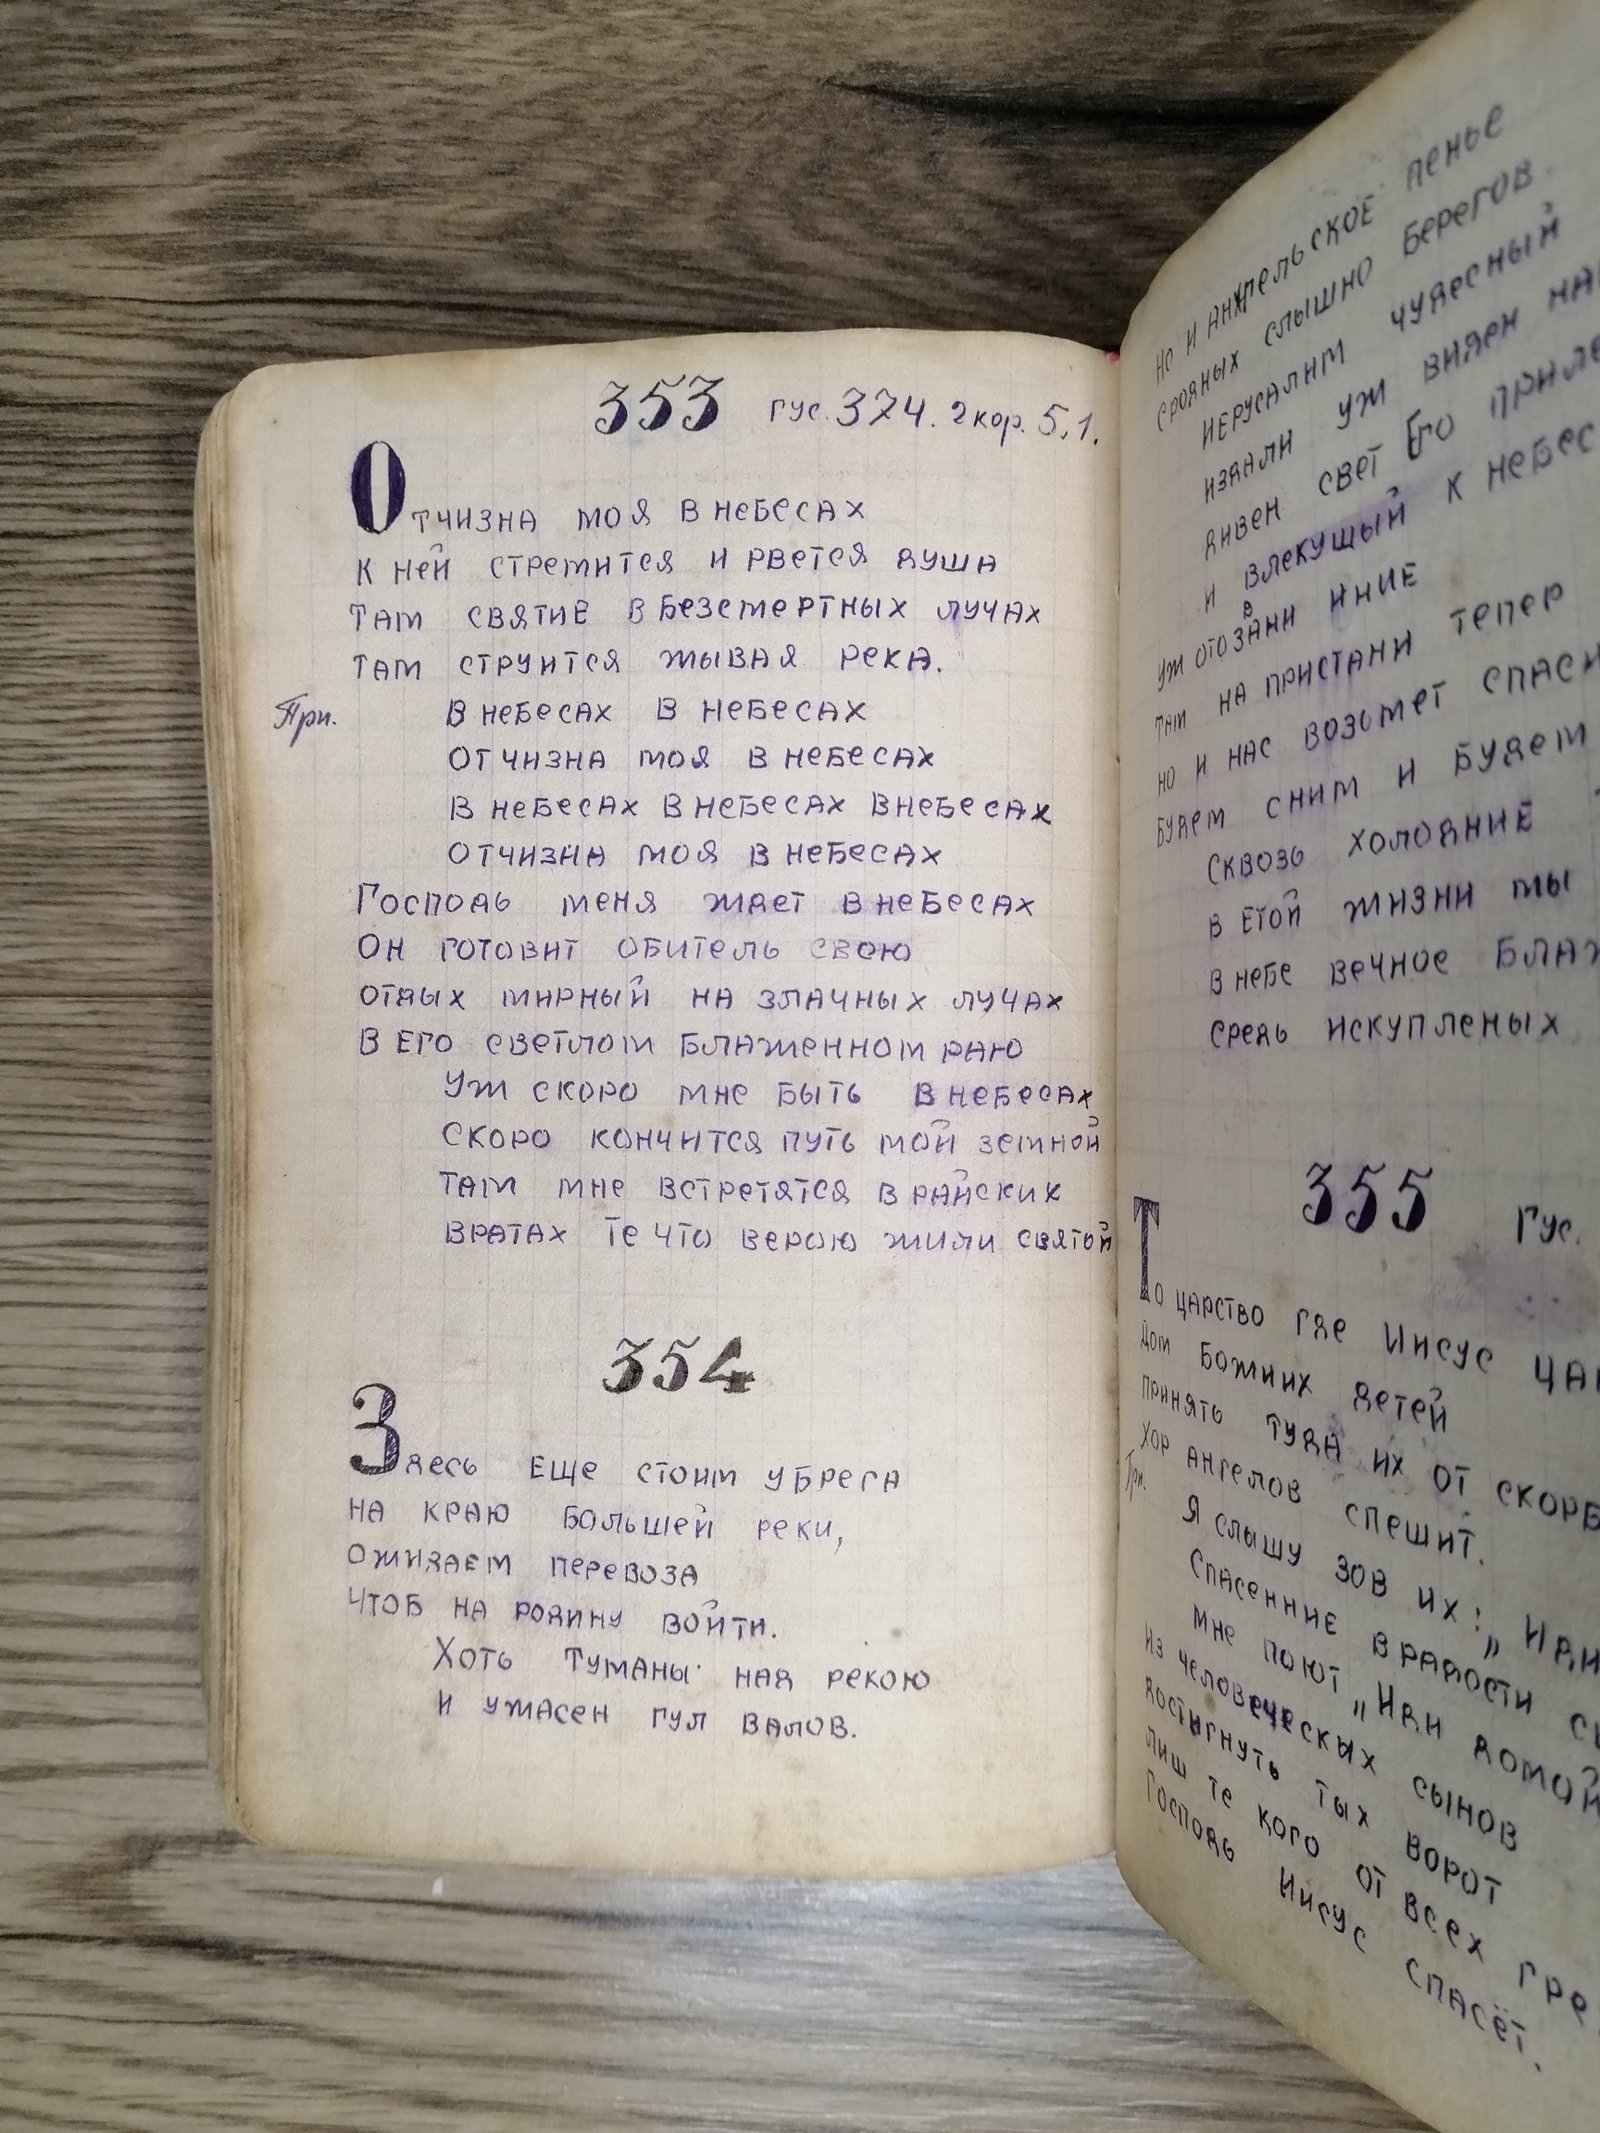 353 Гус. 374. 2 кор. 5.1.
Отчизна моя в небесах
к ней стремится и рвется душа
там святиЕ в безсмертных лучах
там струится жывая река.
При. в небесах в небесах
отчизна моя в небесах
в небесах в небесах внебесах
отчизна моя в небесах
Господь меня ждет в небесах
Он готовит обитель свою
отдых мирный на злачных лучах
в Его светлом блаженном раю
Уж скоро мне быть в небесах
скоро кончится путь мой земной
там мне встретятся в райских
вратах те что верою жили святой
354
Здесь еще стоим у брега
на краю большей реки,
ожидаем перевоза
чтоб на родину войти.
Хоть туманы над рекою
и ужасен гул валов.
но и ангельское пенье
сродных слышно берегов
иерусалим чудесный
издали уж виден
дивен свет Его
и влекущый к небес
уж отозвани инние
там на пристани тепер
но и нас возьмет
будем сним и будем
Сквозь холодние
в етой жизни мы
в небе вечное
средь искупленых
355 Гус.
То царство где Иисус
дом Божиих детей
принять туда их от
хор ангелов спешит.
При. Я слышу зов их: „
Спасенние в радости
мне поют „Иди домой
Из человеческых сынов
достигнуть тых ворот
лиш те кого от всех
Господь Иисус спасёт.